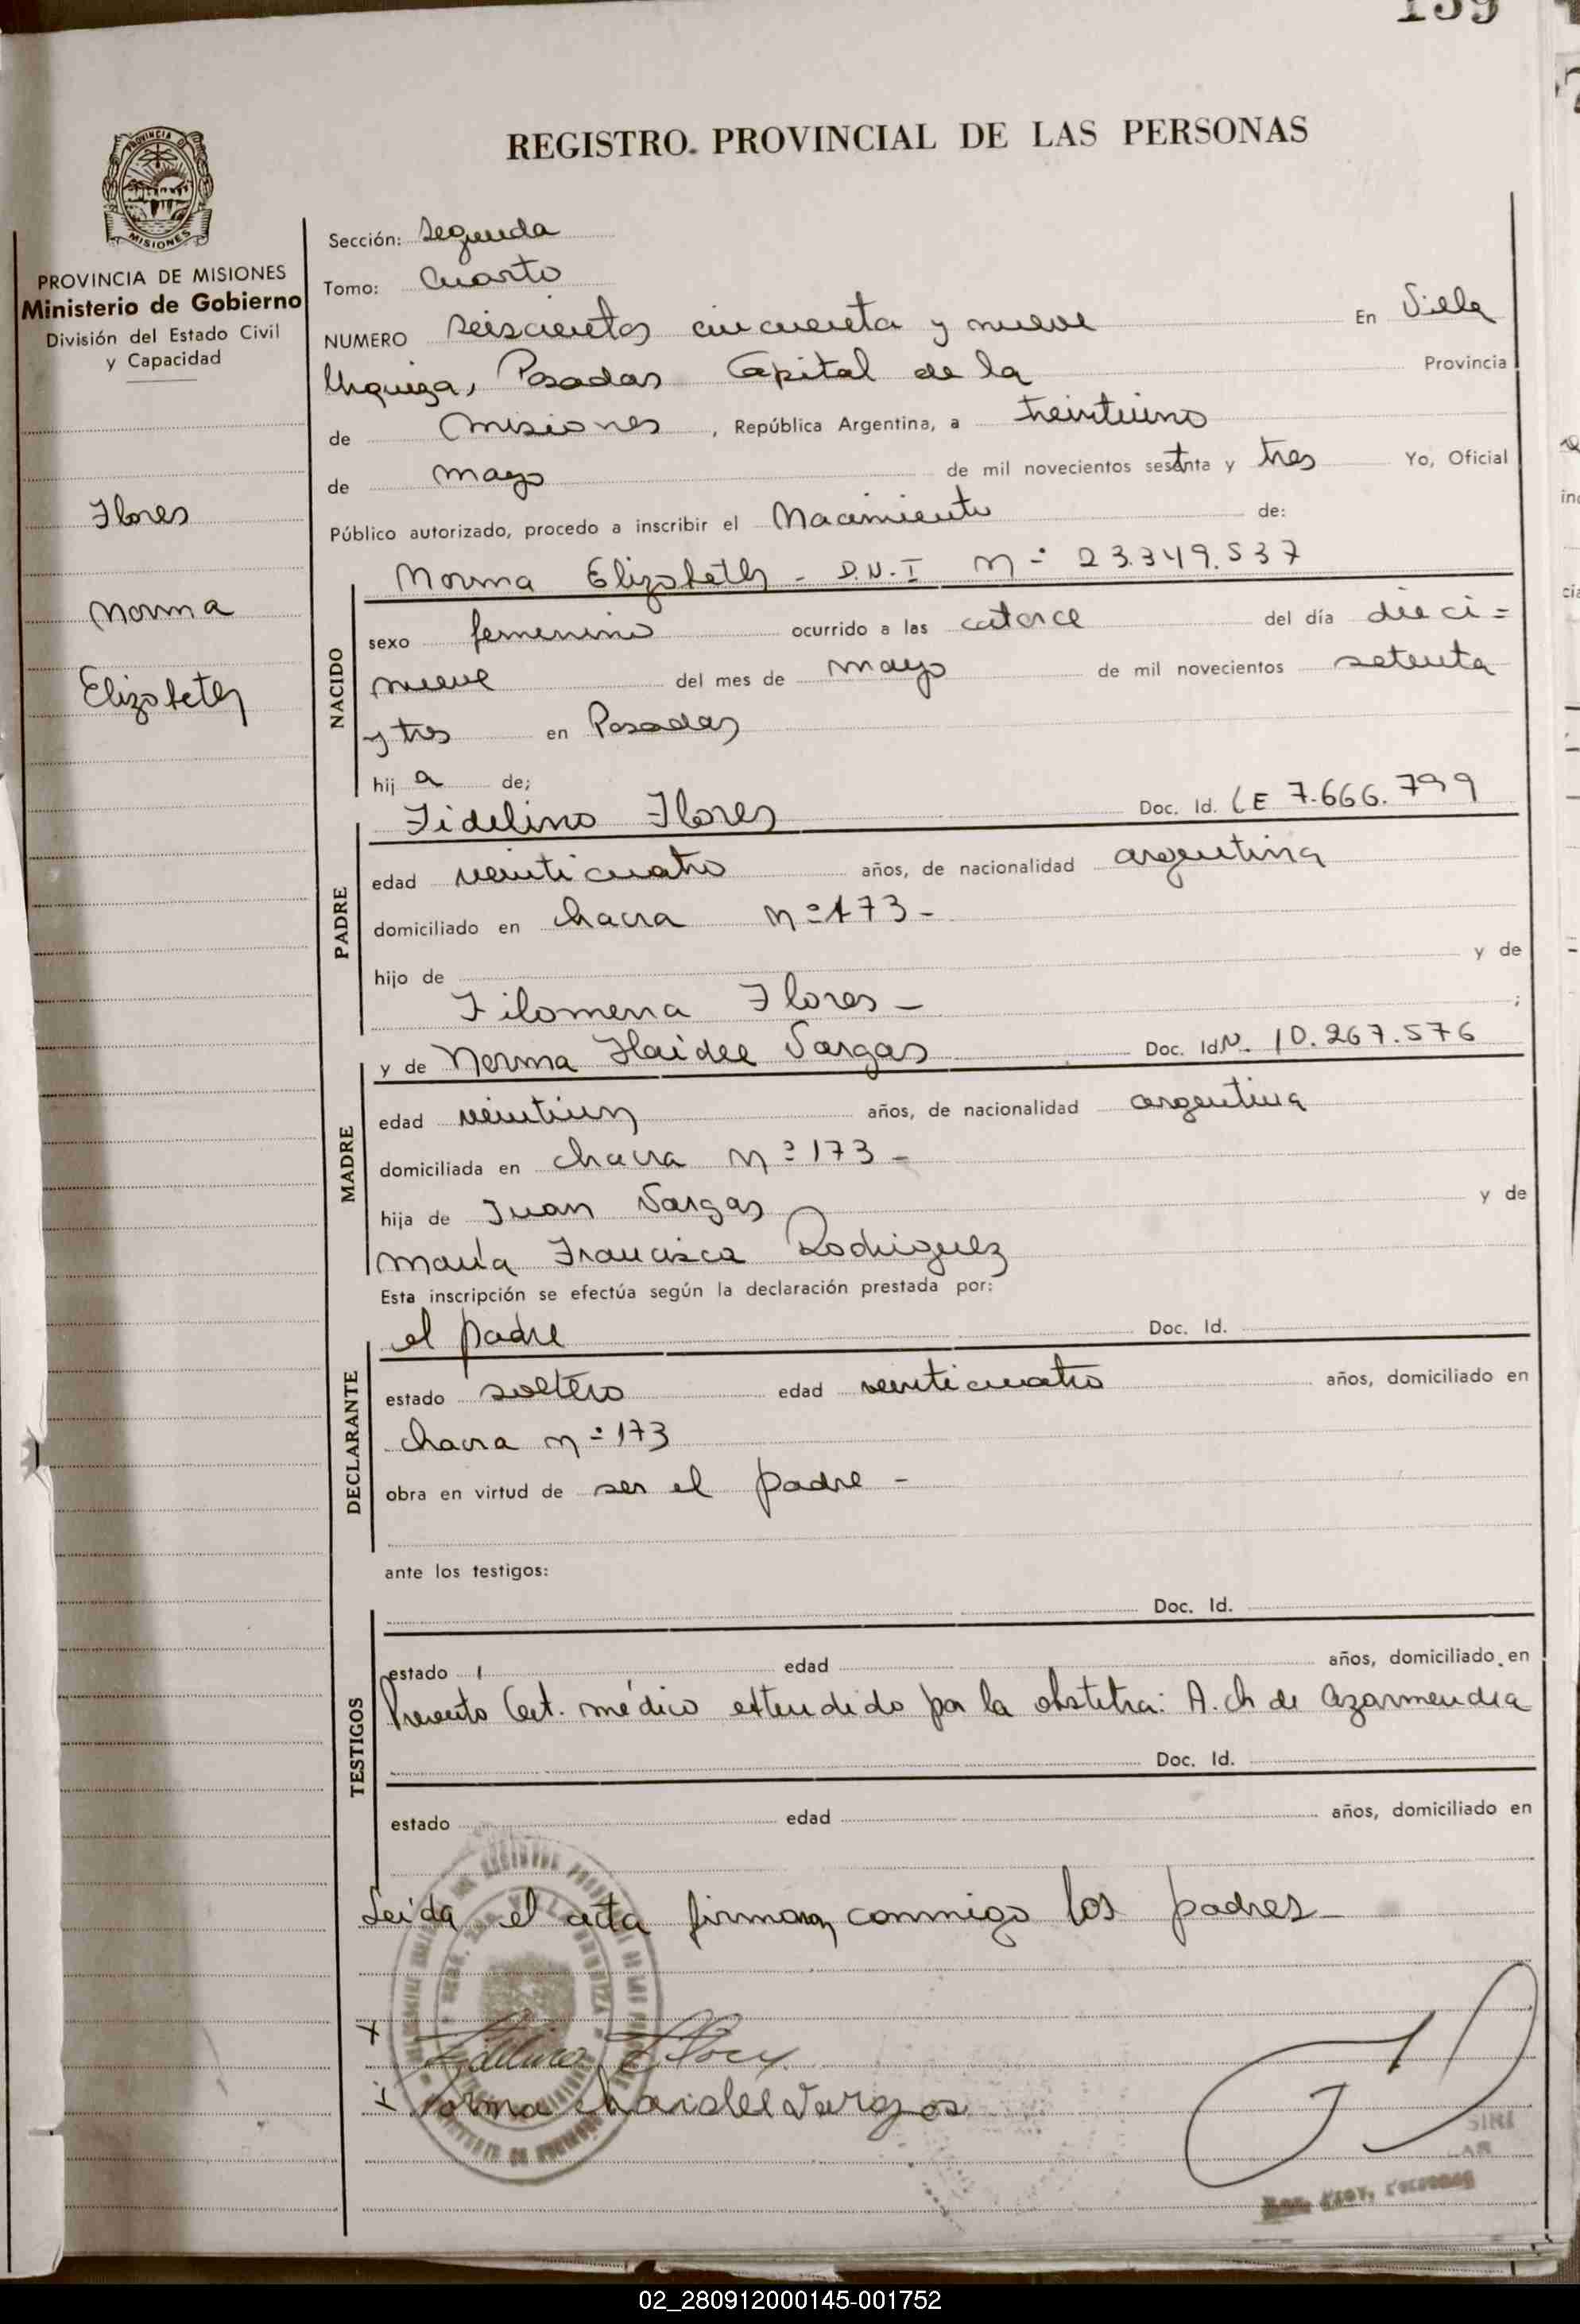 159
REGISTRO PROVINCIAL DE LAS PERSONAS
PROVINCIA DE
MISIONES
PROVINCIA DE MISIONES
Ministerio de Gobierno
División del Estado Civil
y Capacidad
Flores
Norma
Elizabeth
Sección: Segunda
Tomo: Cuarto
NUMERO Seiscientos cincuenta y nueve En Villa
Urquiza, Posadas Capital de la Provincia
de Misiones, República Argentina, a treintiuno
de mayo de mil novecientos setenta y tres Yo, Oficial
Público autorizado, procedo a inscribir el Nacimiento de:
Norma Elizabeth - D.N.I nº 23.349.537
NACIDO
sexo femenino ocurrido a las catorce del día dieci=
nueve del mes de mayo de mil novecientos setenta
y tres en Posadas
hija de;
PADRE
Fidelino Flores Doc. Id. LE 7.666.799
edad veinticuatro años, de nacionalidad argentina
domiciliado en chacra nº 173 -
hijo de y de
Filomena Flores - ;
MADRE
y de Norma Haidee Vargas Doc. Id N. 10.267.576
edad veintiun años, de nacionalidad argentina
domiciliada en chacra nº 173 -
hija de Juan Vargas y de
María Francisca Rodriguez
Esta inscripción se efectúa según la declaración prestada por:
DECLARANTE
el padre Doc. Id.
estado soltero edad veinticuatro años, domiciliado en
chacra nº 173
obra en virtud de ser el padre -
ante los testigos:
TESTIGOS
Doc. Id.
estado edad años, domiciliado en
Presento Cert. médico extendido por la obstetra: A. Ch de Azarmendia
Doc. Id.
estado edad años, domiciliado en
Leida el acta firman conmigo los padres -
Fidelino Flores
Norma Haidee Vargas
02_280912000145-001752